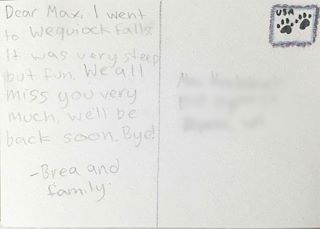 Dear Max, I went
to Wequiock Falls
It was very steep
but fun. We all
miss you very
much, we'll be
back soon. Bye!
-Brea and
family.
USA